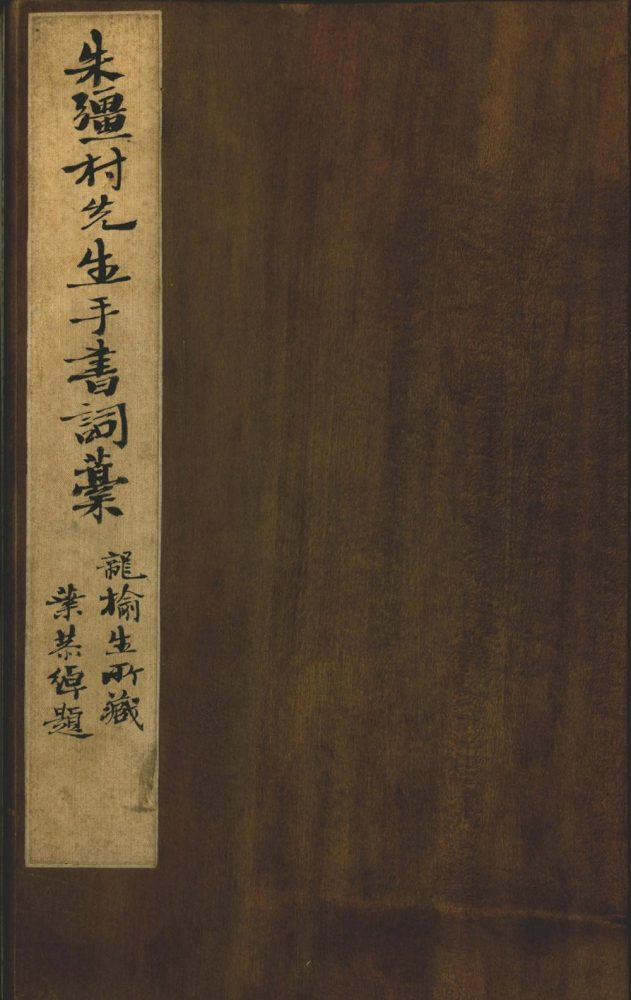 朱彊村先生手書詞藁
龍榆生所藏
葉恭綽題